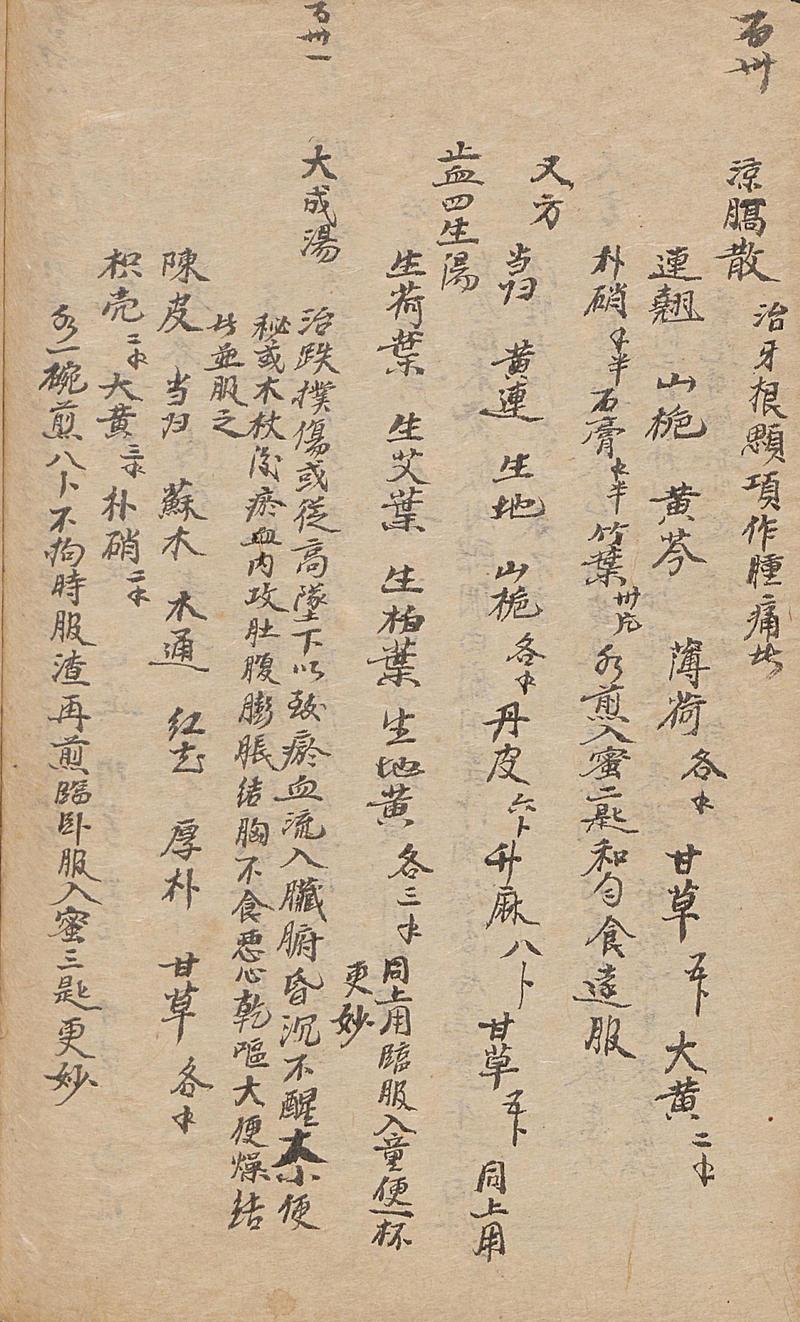 百卅
涼膈散
治牙根顋項作腫痛此
連翹 山梔 黄芩 薄荷 各 甘草 五卜 大黄 二
朴硝 半 石膏 半 竹葉 卅片 水煎入蜜二匙和匀食遠服
又方
当归 黄連 生地 山梔 各 丹皮 六卜 升麻 八卜 甘草 五卜 同上用
止血四生湯
生荷葉 生艾葉 生柏葉 生地黄 各三 同上用臨服入童便一杯
更妙
百卅一
大成湯
治跌撲傷或從高墜下以致瘀血流入臟腑昏沉不醒大小便
秘或木杖後瘀血内攻肚腹膨脹結胸不食悪心乾嘔大便燥结
此並服之
陳皮 当归 蘇木 木通 红花 厚朴 甘草 各
枳壳 二 大黄 三 朴硝 二
水一碗煎八卜不拘時服渣再煎臨卧服入蜜三匙更妙